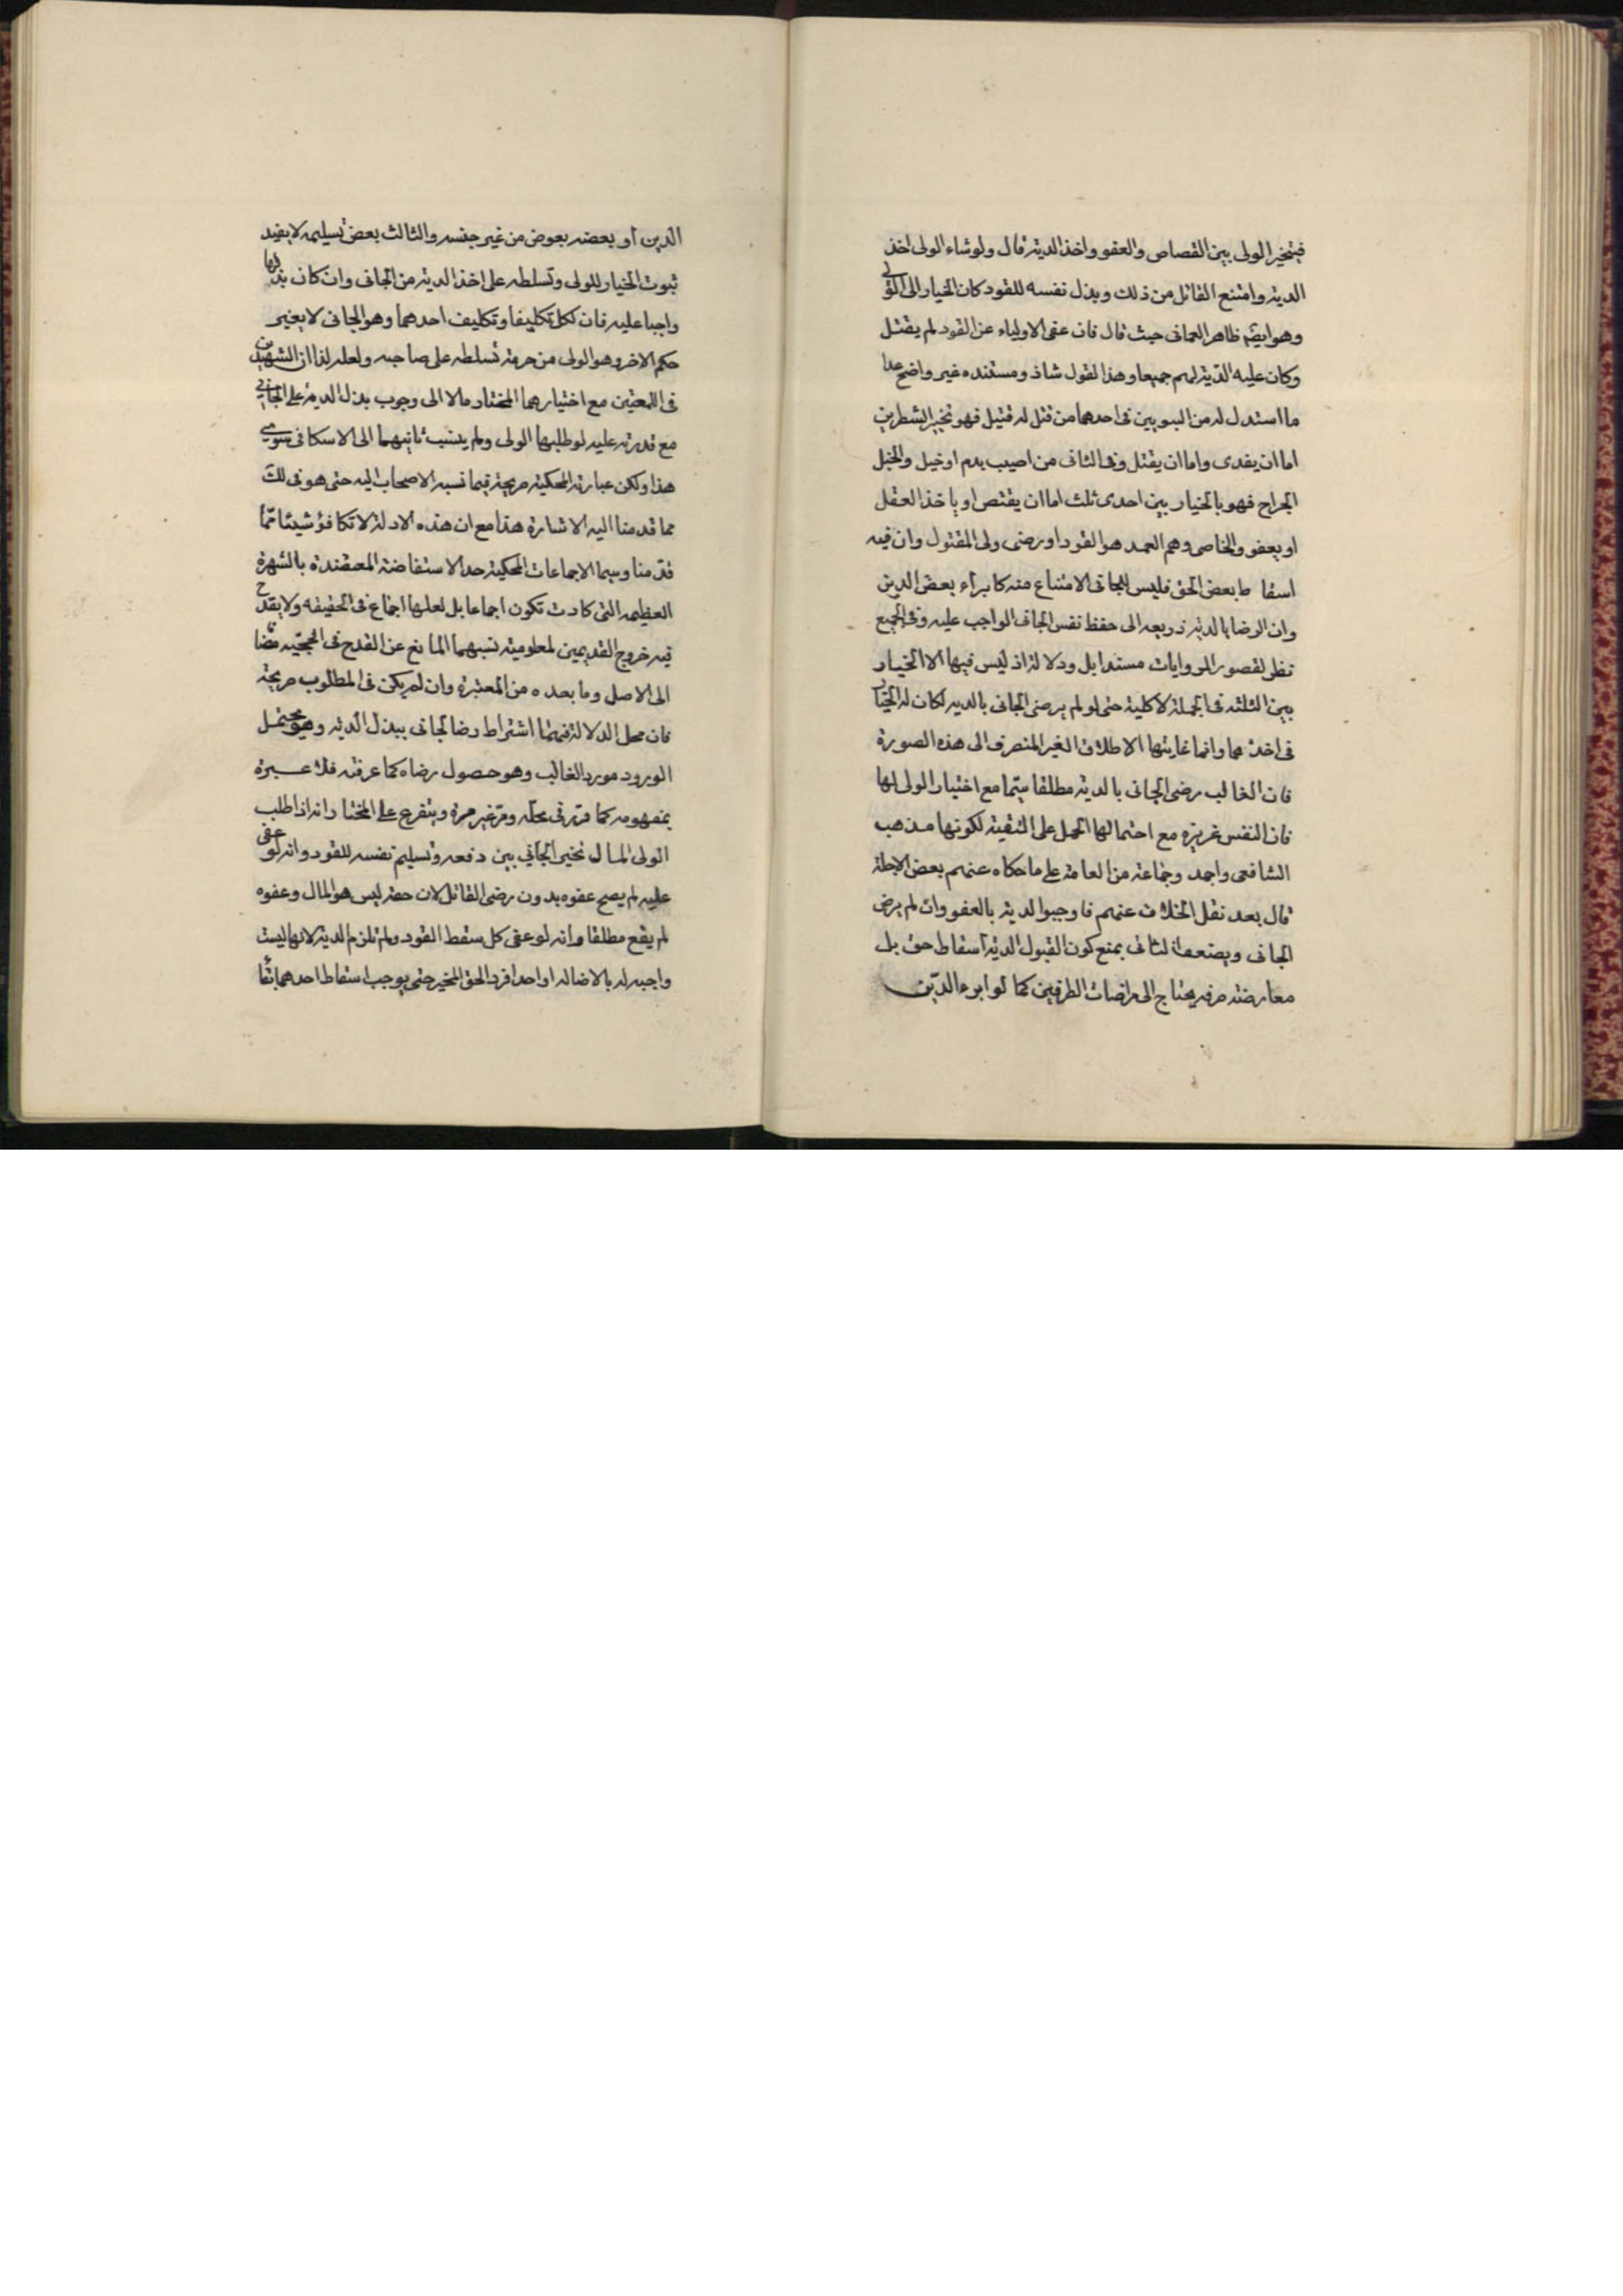 فيتخير الولي بين القصاص والعفو واخذ الدية قال ولو شاء الولي اخذ
الدية وامتنع القاتل من ذلك وبذل نفسه للقود كان الخيار الى الولي
وهو ايضم ظاهر العماني حيث قال فان عفى الاولياء عن القود لم يقتل
وكان عليه الدية لهم جميعا وهذا لقول شاذ ومستنده غير واضح عدا
ما استدل له من النبويين في احدهما من قتل له قتيل فهو بخير الشطرين
اما ان يفدى واما ان يقتل وفي الثاني من اصيب بدم او خبل والخبل
الجراح فهو بالخيار بين احدى ثلث اما ان يقتص او ياخذ العقل
او يعفو والخاصي وهم العمد هو القود او رضى ولي المقتول وان فيه
اسقا ط بعض الحق فليس للجاني الامتناع منه كابراء بعض الدين
وان الرضا بالدية ذريعه الى حفظ نفس الجاني الواجب عليه وفي الجميع
نظر لقصور الروايات مسندا بل ودلالة اذ ليس فيها الا الخيار
بين الثلثه في الجملة لا كلية حتى لو لم يرضى الجاني بالديه لكان له الخيار
في اخذ هما وانما غايتها الاطلاق الغير المنصرف الى هذه الصورة
فان الغالب رضى الجاني بالدية مطلقا سيما مع اختيار الولي لها
فان النفس عزيزه مع احتمالها الحمل على التقية لكونها مذهب
الشافعي واحمد وجماعة من العامة على ما حكاه عنهم بعض الاجلة
قال بعد نقل الخلاف عنهم فاوجبوا لدية بالعفو وان لم يرض
الجاني ويضعف الثاني بمنع كون القبول لدية اسقاط حق بل
معارضة صرفه يحتاج الى مراضات الطرفين كما لو ابرء الدين
الدين او بعضه بعوض من غير جنسه والثالث بعض تسليمه لا يفيد
ثبوت الخيار للولي وتسلطه على اخذ الدية من الجاني وان كان بذلها
واجبا عليه فان لكل تكليفا وتكليف احدهما وهو الجاني لا يغير
حكم الاخر وهو الولي من حرمة تسلطه على صاحبه ولعله لذا ان الشهيدين
في اللمعتين مع اختيارهما المختار مالا الى وجوب بذل الدية على الجاني
مع قدرته عليه لو طلبها الولي ولم ينسب ثانيهما الى الاسكافي سوى
هذا ولكن عبارته المحكية صريحة فيما نسبه الاصحاب اليه حتى هو في لك
مما قدمنا اليه الاشارة هذا مع ان هذه الادلة لا تكافؤ شيئا مما
قدمنا وسيما الاجماعات المحكية حد الاستفاضة المعتضدة بالشهرة
العظيمه التي كادت تكون اجماعا بل لعلها اجماع في الحقيقه ولا يقدح
فيه خروج القديمين لمعلومية نسبهما المانع عن القدح في الحجية مضا
الى الاصل وما بعده من المعتبرة وان لم يكن في المطلوب صريحة
فان محل الدلالة فيهما اشتراط رضا الجاني ببذل الديه وهو يحتمل
الورود مورد الغالب وهو حصول رضاه كما عرفته فلا عبرة
بمفهومه كما قرر في محله ومر غير مرة ويتفرع على المختار انه اذا طلب
الولي المال تخير الجاني بين دفعه وتسليم نفسه للقود وانه لو عفى
عليه لم يصح عفوه بدون رضى القاتل لان حقه ليس هو المال وعفوه
لم يقع مطلقا وانه لو عفى كل سقط القود ولم تلزم الدية لانها ليست
واجبه له بالاضاله او احد افرد الحق المخير حتى يوجب اسقاط احدهما بقا